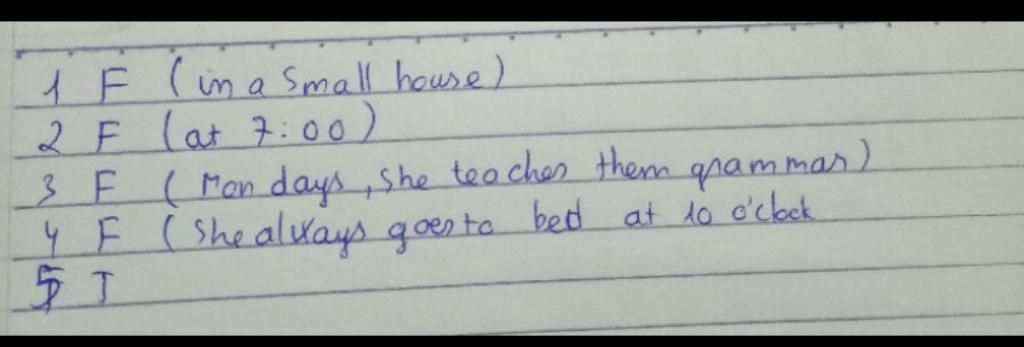 1 F (in a small house)
2 F (at 7:00)
3 F (Mondays, she teaches them grammar)
4 F (She always goes to bed at 10 o'clock
5 T